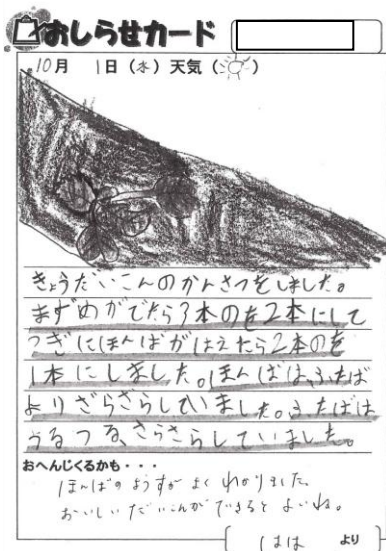 おしらせカード
10月 1日(水)天気(☀)
きょうだいこんのかんさつをしました。
まずめがでたら3本のを2本にして
つぎにほんばがはえたら2本のを
1本にしました。ほんばは、ふたば
よりざらざらしていました。ふたばは
つるつる、さらさらしていました。
おへんじくるかも・・・
ほんばのようすがよくわかりました。
おいしいだいこんができるとよいね。
はは より